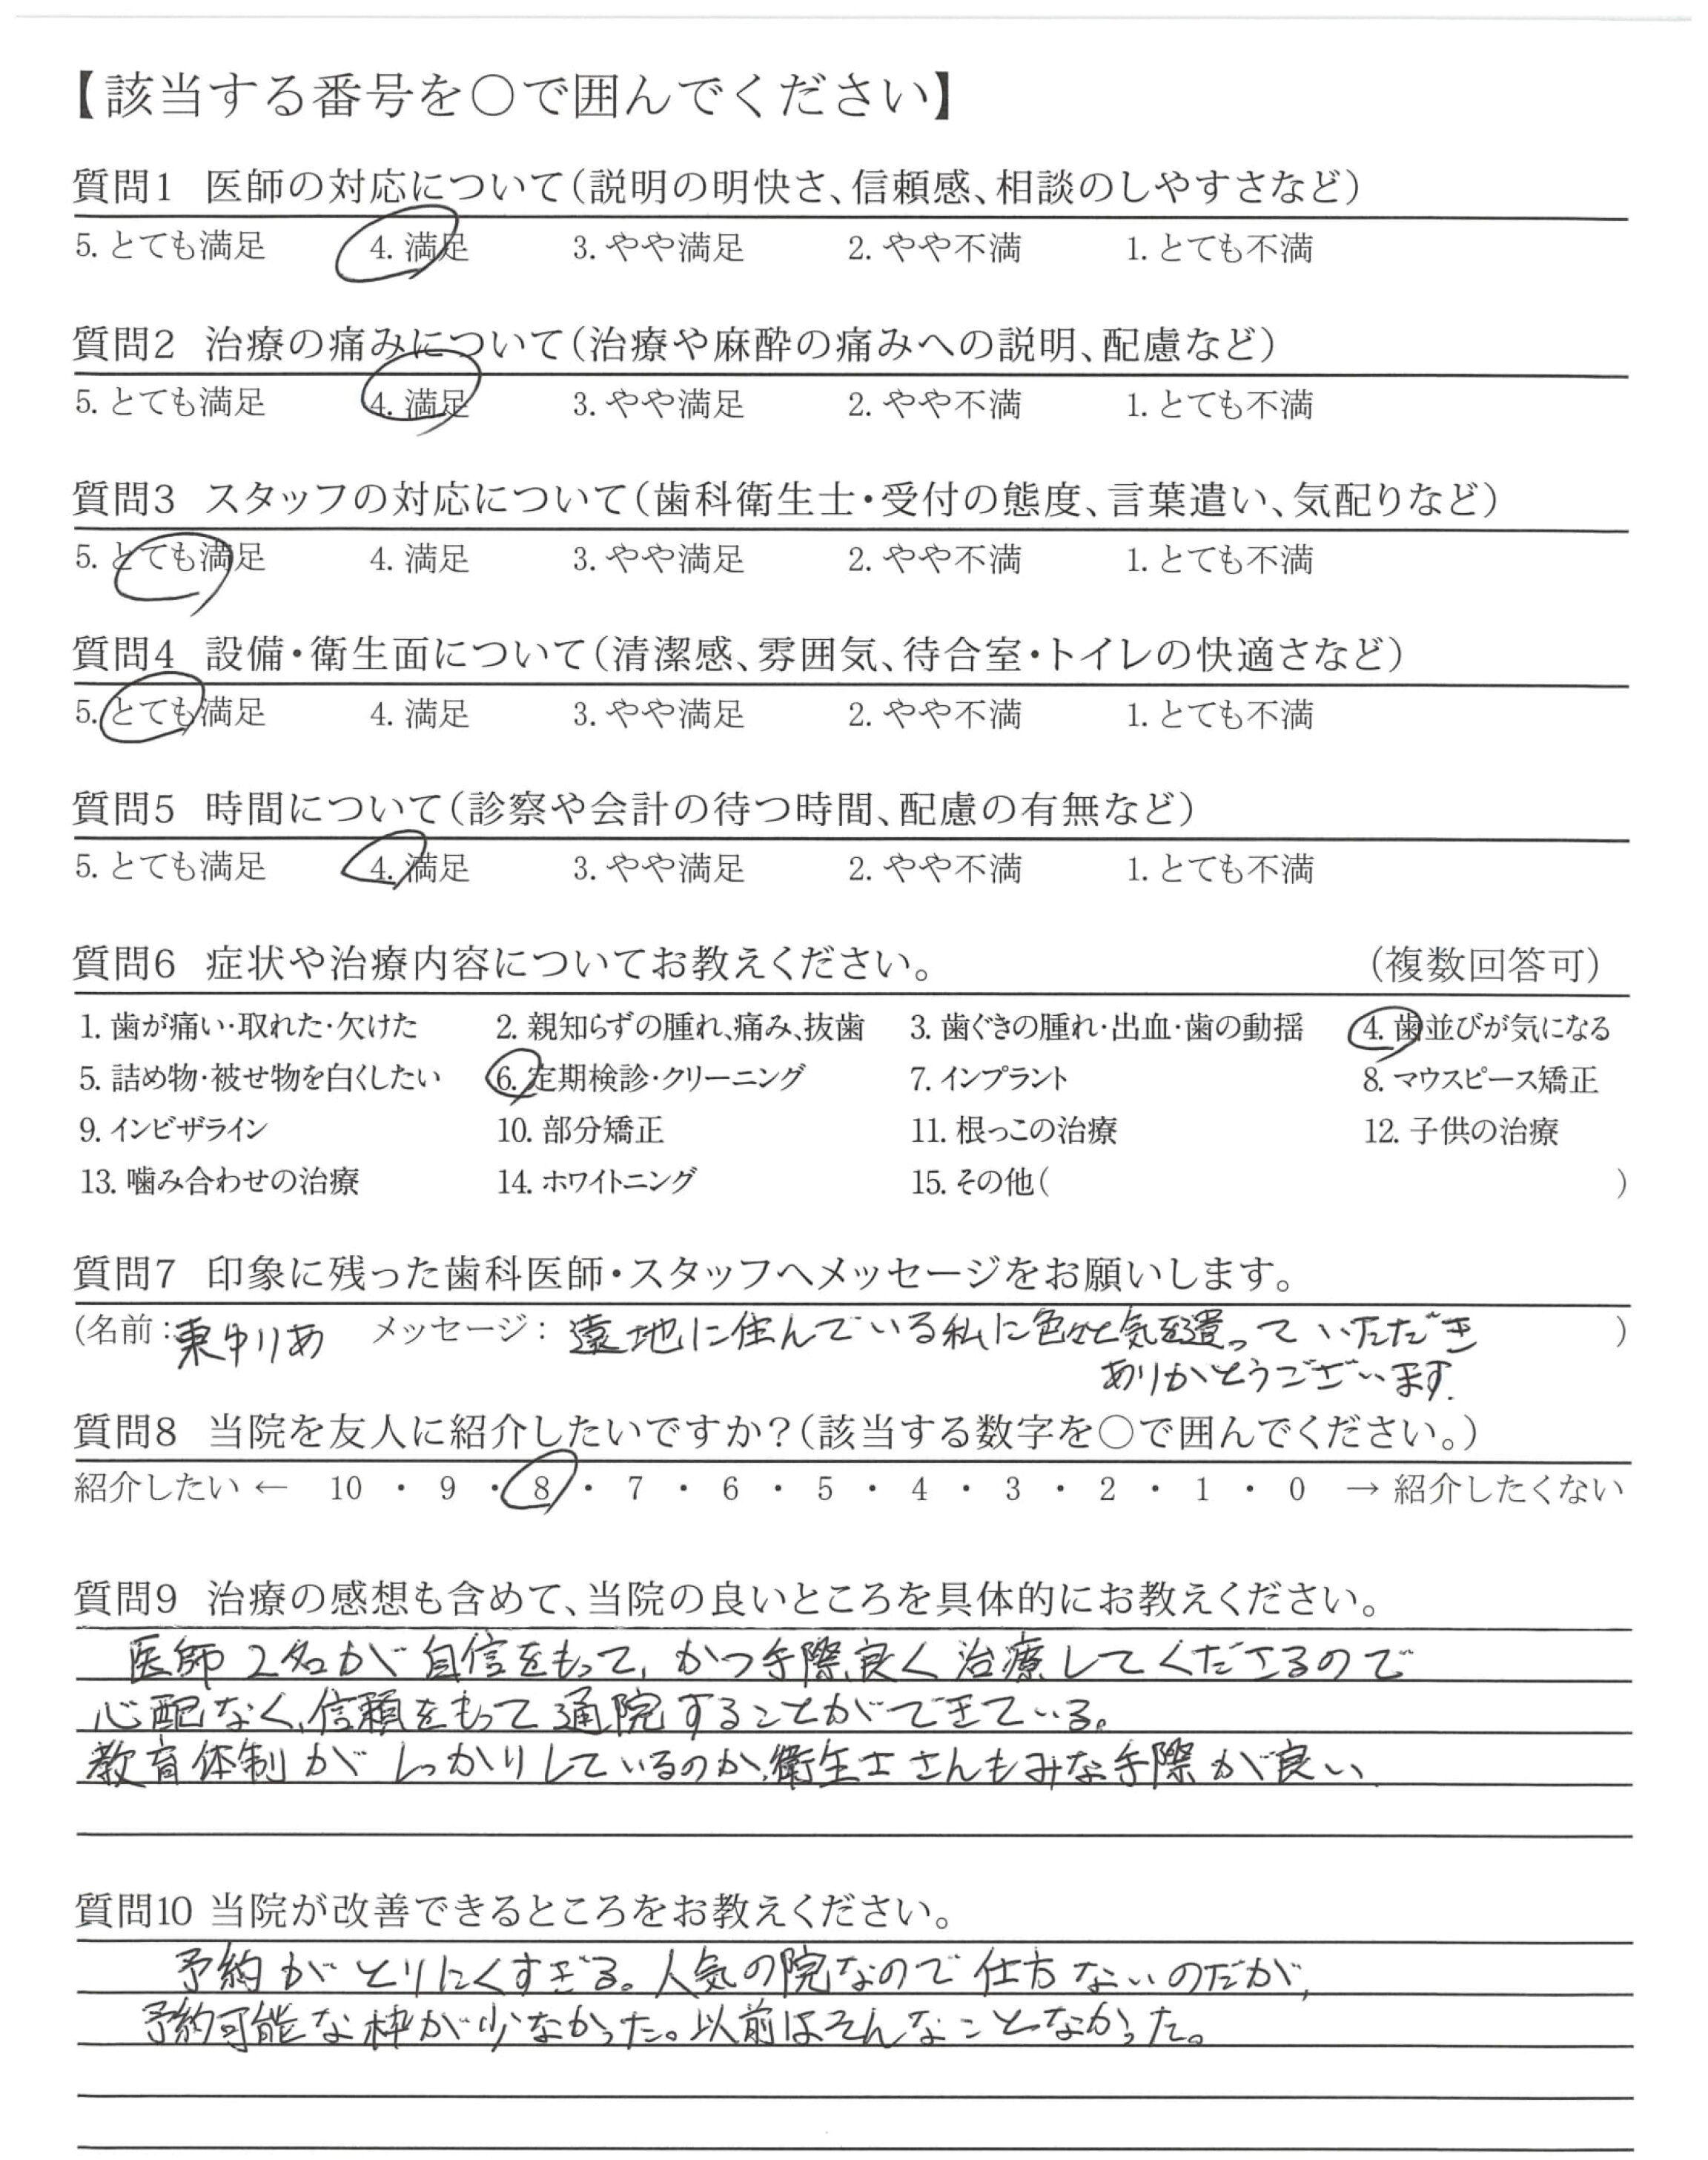 【該当する番号を○で囲んでください】
質問1 医師の対応について(説明の明快さ、信頼感、相談のしやすさなど)
5. とても満足 4. 満足 3. やや満足 2. やや不満 1. とても不満
質問2 治療の痛みについて(治療や麻酔の痛みへの説明、配慮など)
5. とても満足 4. 満足 3. やや満足 2. やや不満 1. とても不満
質問3 スタッフの対応について(歯科衛生士・受付の態度、言葉遣い、気配りなど)
5. とても満足 4. 満足 3. やや満足 2. やや不満 1. とても不満
質問4 設備・衛生面について(清潔感、雰囲気、待合室・トイレの快適さなど)
5. とても満足 4. 満足 3. やや満足 2. やや不満 1. とても不満
質問5 時間について(診察や会計の待つ時間、配慮の有無など)
5. とても満足 4. 満足 3. やや満足 2. やや不満 1. とても不満
質問6 症状や治療内容についてお教えください。 (複数回答可)
1. 歯が痛い・取れた・欠けた 2. 親知らずの腫れ、痛み、抜歯 3. 歯ぐきの腫れ・出血・歯の動揺 4. 歯並びが気になる
5. 詰め物・被せ物を白くしたい 6. 定期検診・クリーニング 7. インプラント 8. マウスピース矯正
9. インビザライン 10. 部分矯正 11. 根っこの治療 12. 子供の治療
13. 噛み合わせの治療 14. ホワイトニング 15. その他( )
質問7 印象に残った歯科医師・スタッフへメッセージをお願いします。
(名前: メッセージ: 遠地に住んでいる私に色々と気を遣っていただき )
ありがとうございます.
質問8 当院を友人に紹介したいですか?(該当する数字を○で囲んでください。)
紹介したい ← 10 ・ 9 ・ 8 ・ 7 ・ 6 ・ 5 ・ 4 ・ 3 ・ 2 ・ 1 ・ 0 → 紹介したくない
質問9 治療の感想も含めて、当院の良いところを具体的にお教えください。
医師2名が自信をもって、かつ手際良く治療してくださるので
心配なく、信頼をもって通院することができている。
教育体制がしっかりしているのか、衛生士さんもみな手際が良い
質問10 当院が改善できるところをお教えください。
予約がとりにくすぎる。人気の院なので仕方ないのだが、
予約可能な枠が少なかった。以前はそんなことなかった。